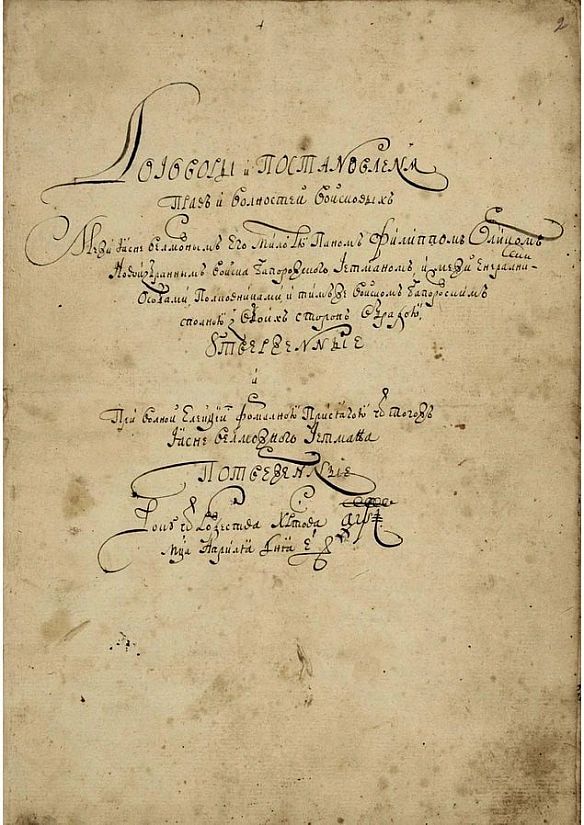 2
Договоры и Постановленѧ
Правъ и волностей войсковыхъ
Межи Ясне велможнымъ Его милостю Паномъ Филиппомъ Орликомъ
Новоизбраннымъ войска Запорозкого Гетманомъ, и межи Енерални-
Особами, Полковниками и тимъже войскомъ Запорозкимъ
сполною з обоихъ сторонъ
Утверженные
и
При волной Елекцїи формалною Присягою ѿ тогожъ
Ясне велможного Гетмана
Потверженные
Року ѿ Рожества Христова
мца Априлїа